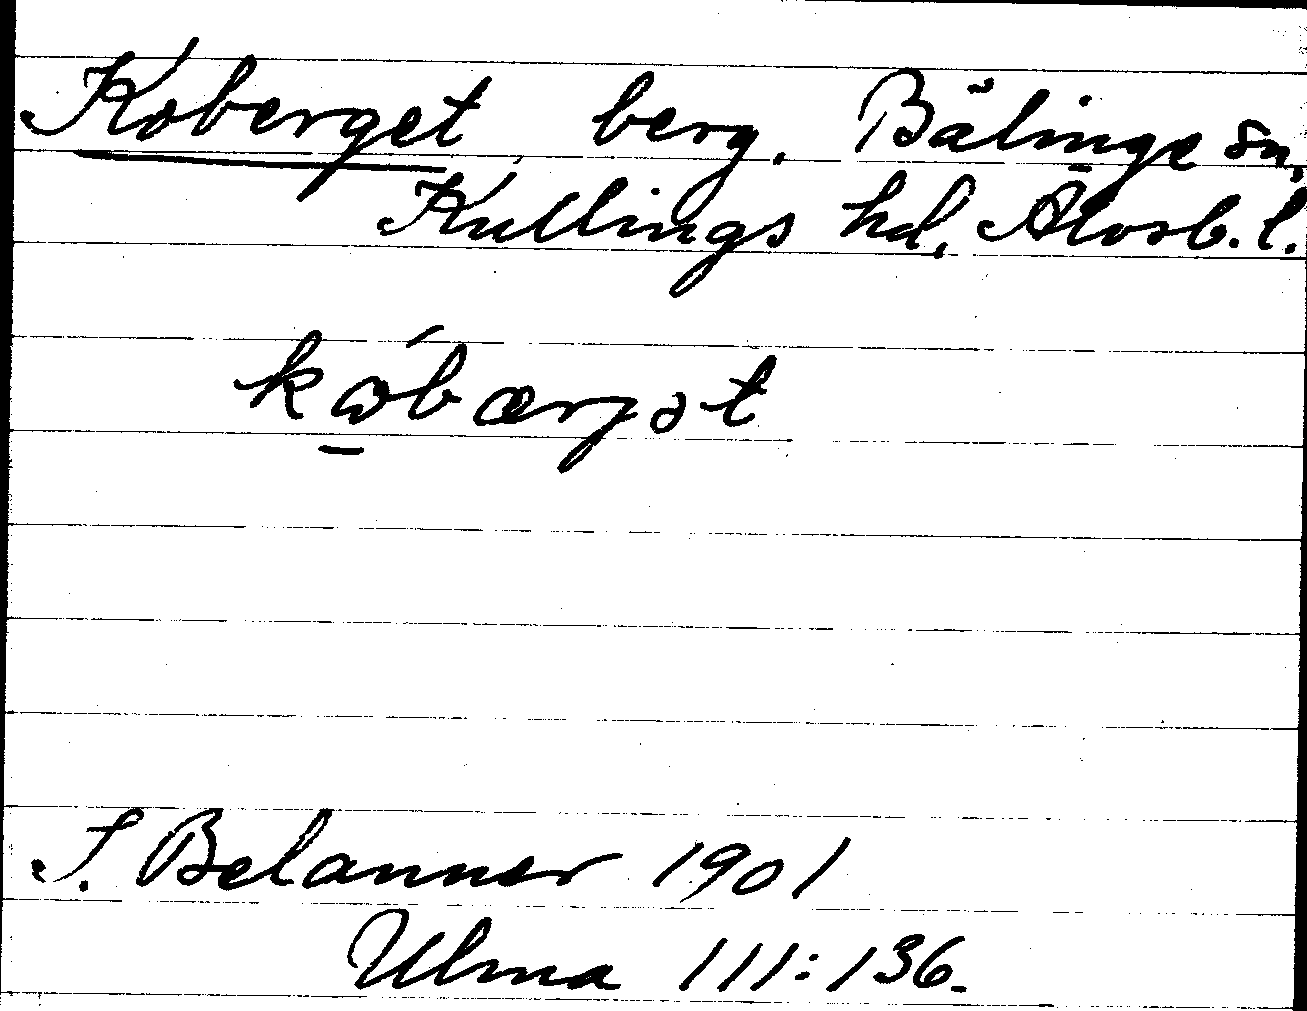 Koberget berg. Bälinge sn,
Kullings hd, Älvsb. l.
kώ̱bærgət
S. Belanner 1901
Ulma 111:136.